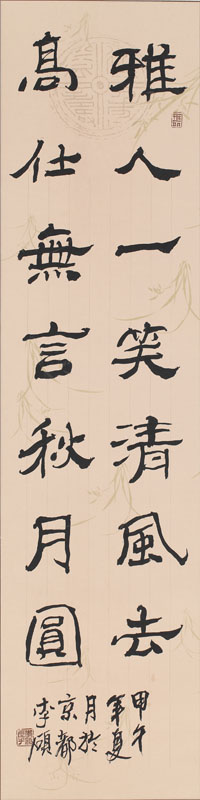 雅人一笑清風去
高仕無言秋月圓
甲午
年夏
月於
京都
李碩